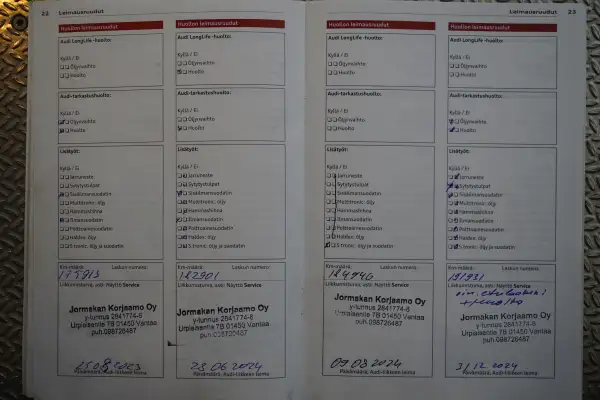 22 Leimausruudut
Huollon leimausruudut
Audi LongLife -huolto:
Kyllä / Ei
Öljynvaihto
Huolto
Audi-tarkastushuolto:
Kyllä / Ei
Öljynvaihto
Huolto
Lisätyöt:
Kyllä / Ei
Jarruneste
Sytytystulpat
Sisäilmansuodatin
Multitronic- öljy
Hammashihna
Ilmansuodatin
Polttoainesuodatin
Haldex- öljy
S tronic- öljy ja suodatin
Km-määrä: Laskun numero:
175913
Liikkumisturva, asti- Näyttö Service
Jormakan Korjaamo Oy
y-tunnus 2841774-6
Urpiaisentie 7B 01450 Vantaa
puh.098726487
25 08 2023
Päivämäärä, Audi-liikkeen leima
Huollon leimausruudut
Audi LongLife -huolto:
Kyllä / Ei
Öljynvaihto
Huolto
Audi-tarkastushuolto:
Kyllä / Ei
Öljynvaihto
Huolto
Lisätyöt:
Kyllä / Ei
Jarruneste
Sytytystulpat
Sisäilmansuodatin
Multitronic- öljy
Hammashihna
Ilmansuodatin
Polttoainesuodatin
Haldex- öljy
S tronic- öljy ja suodatin
Km-määrä: Laskun numero:
182901
Liikkumisturva, asti- Näyttö Service
Jormakan Korjaamo Oy
y-tunnus 2841774-6
Urpiaisentie 7B 01450 Vantaa
puh.098726487
28 06 2024
Päivämäärä, Audi-liikkeen leima
Leimausruudut 23
Huollon leimausruudut
Audi LongLife -huolto:
Kyllä / Ei
Öljynvaihto
Huolto
Audi-tarkastushuolto:
Kyllä / Ei
Öljynvaihto
Huolto
Lisätyöt:
Kyllä / Ei
Jarruneste
Sytytystulpat
Sisäilmansuodatin
Multitronic- öljy
Hammashihna
Ilmansuodatin
Polttoainesuodatin
Haldex- öljy
S tronic- öljy ja suodatin
Km-määrä: Laskun numero:
184946
Liikkumisturva, asti- Näyttö Service
Jormakan Korjaamo Oy
y-tunnus 2841774-6
Urpiaisentie 7B 01450 Vantaa
puh.098726487
09 08 2024
Päivämäärä, Audi-liikkeen leima
Huollon leimausruudut
Audi LongLife -huolto:
Kyllä / Ei
Öljynvaihto
Huolto
Audi-tarkastushuolto:
Kyllä / Ei
Öljynvaihto
Huolto
Lisätyöt:
Kyllä / Ei
Jarruneste
Sytytystulpat
Sisäilmansuodatin
Multitronic- öljy
Hammashihna
Ilmansuodatin
Polttoainesuodatin
Haldex- öljy
S tronic- öljy ja suodatin
Km-määrä: Laskun numero:
191931
Liikkumisturva, asti- Näyttö Service
+huolto
Jormakan Korjaamo Oy
y-tunnus 2841774-6
Urpiaisentie 7B 01450 Vantaa
puh.098726487
31 12 2024
Päivämäärä, Audi-liikkeen leima